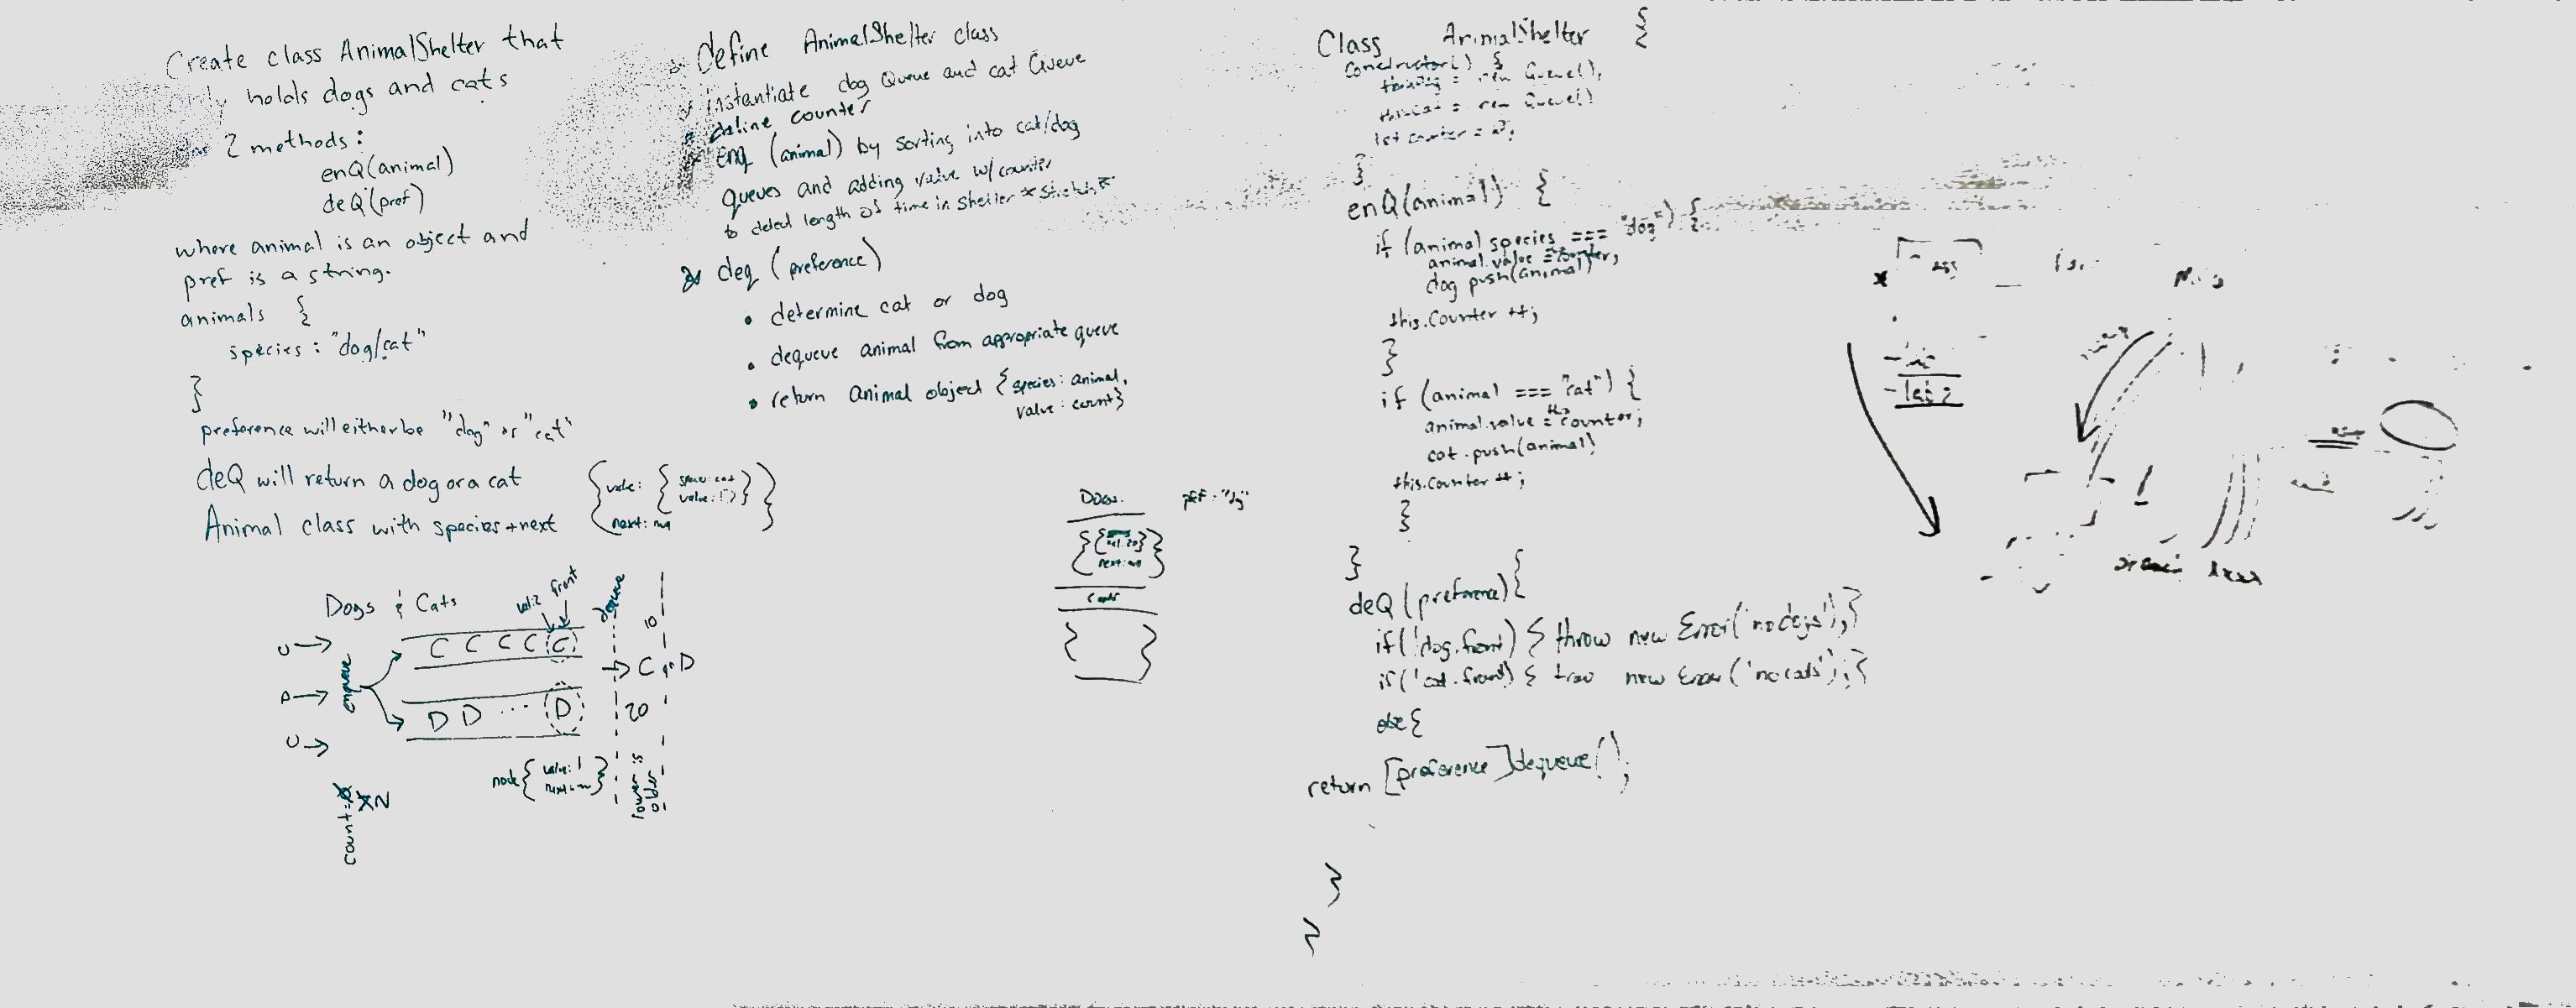 Create class AnimalShelter that
only holds dogs and cats
2 methods:
enQ(animal)
deQ(pref)
where animal is an object and
pref is a string.
animals {
species: "dog/cat"
}
preference will either be "dog" or "cat"
deQ will return a dog or a cat
Animal class with species + next
{ value: { species: cat
value: 1 } }
next: null
Dogs & Cats
val:2 front
dequeue
enqueue
C C C C C
10
→ C or D
D D ... D
20
node { value: 1
next: null }
lower is older
count: 0 1 N
Define AnimalShelter class
instantiate dog Queue and cat Queue
define counter
enq (animal) by sorting into cat/dog
queues and adding value w/counter
to detect length of time in shelter *stretch*
deq (preference)
• determine cat or dog
• dequeue animal from appropriate queue
• return animal object {species: animal,
value: count}
Dogs
pref: "dog"
next: null
Cats
{ }
Class AnimalShelter {
constructor() {
this.dog = new Queue();
this.cat = new Queue()
let counter = 0;
}
enQ(animal) {
if (animal.species === "dog") {
animal.value = counter;
dog.push(animal)
this.counter ++;
}
if (animal === "cat") {
animal.value = this.counter;
cat.push(animal)
this.counter ++;
}
}
deQ(preference) {
if(!dog.front) { throw new Error('no dogs'); }
if(!cat.front) { throw new Error('no cats'); }
else {
return [preference]dequeue();
}
}